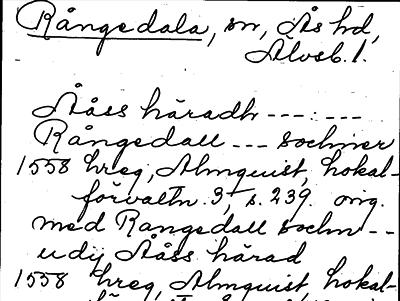 Rångedala, sn, Ås hd,
Älvsb. l.
Åååss häradh --- : ---
Rångedall --- sochner
1558 hreg, Almquist, Lokal-
förvaltn. 3, s. 239. orig.
med Rangedall sochn --
udij Åååss härad
1558 hreg, Almquist, Lokal-